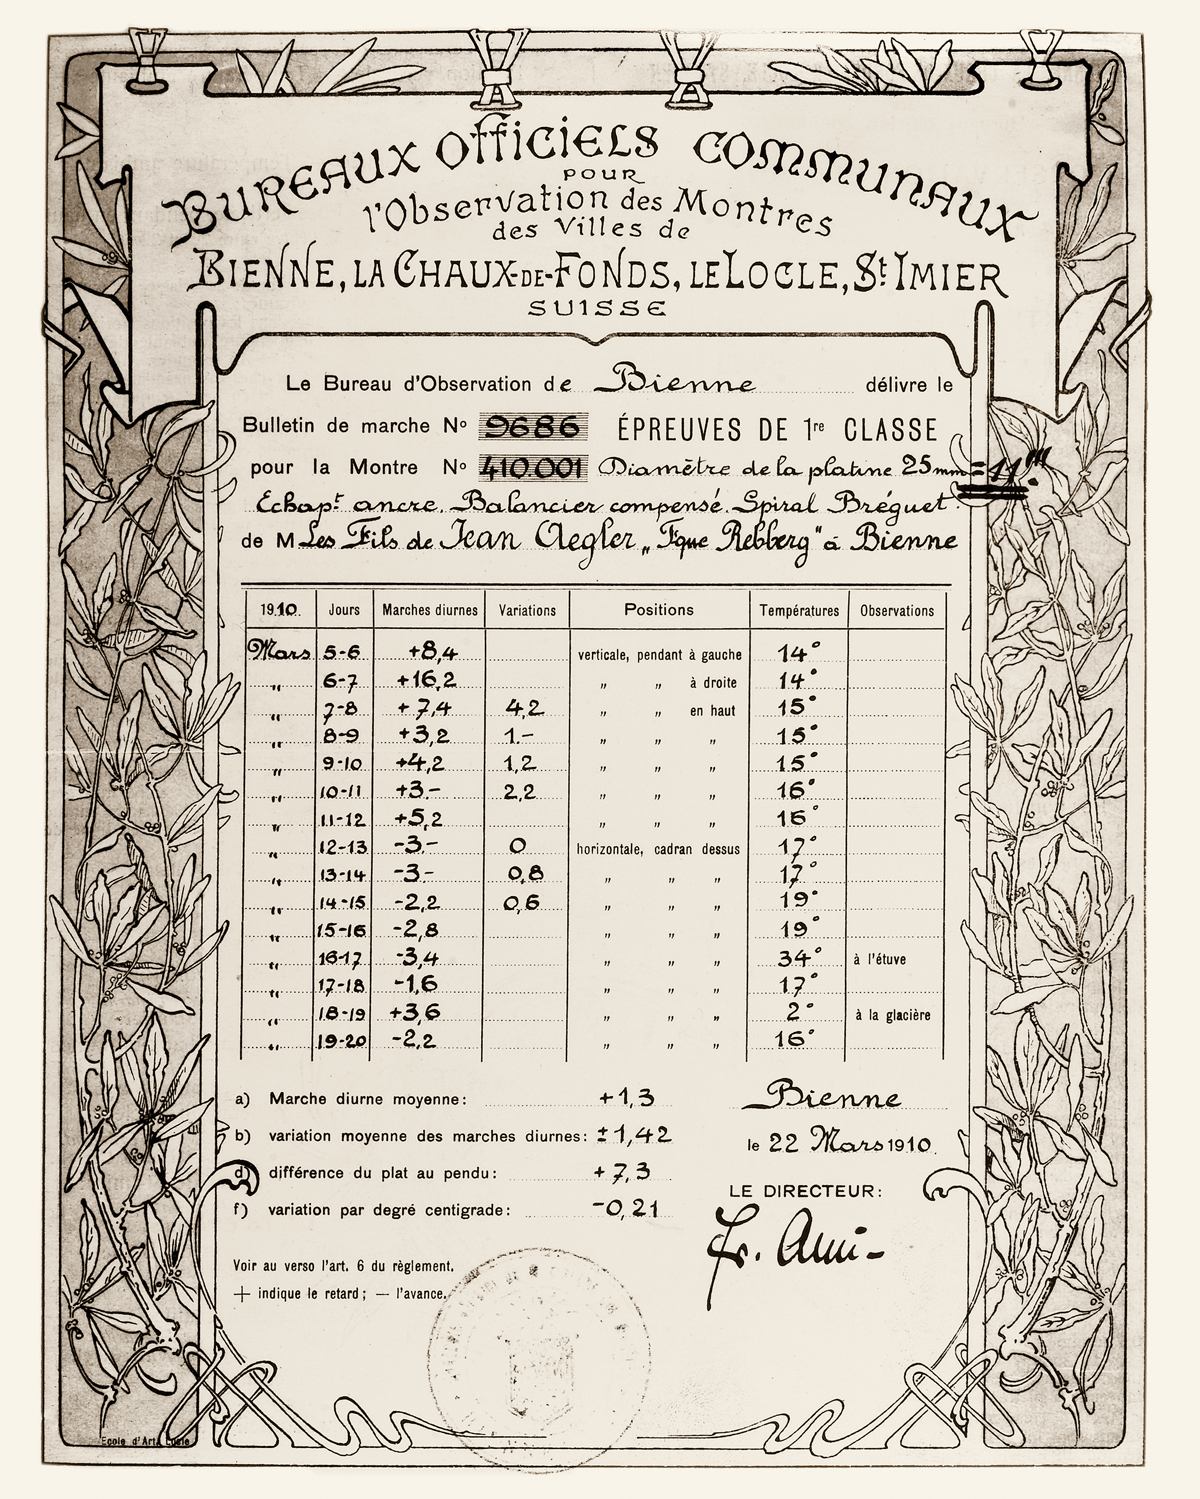 BUREAUX OFFICIELS COMMUNAUX
POUR
l'Observation des Montres
des Villes de
BIENNE, LA CHAUX-DE-FONDS, LE LOCLE, St IMIER
SUISSE
Le Bureau d'Observation de Bienne délivre le
Bulletin de marche No 9686 ÉPREUVES DE 1re CLASSE
pour la Montre No 410.001 Diamètre de la platine 25 mm = 11'''
Echapt ancre. Balancier compensé. Spiral Bréguet.
de M Les Fils de Jean Aegler „Fque Rebberg" à Bienne
1910. Jours Marches diurnes Variations Positions Températures Observations
Mars 5-6 +8,4 verticale, pendant à gauche 14°
„ 6-7 +16,2 „ „ à droite 14°
„ 7-8 +7,4 4,2 „ „ en haut 15°
„ 8-9 +3,2 1.- „ „ „ 15°
„ 9-10 +4,2 1,2 „ „ „ 15°
„ 10-11 +3.- 2,2 „ „ „ 16°
„ 11-12 +5,2 „ „ „ 16°
„ 12-13 -3.- 0 horizontale, cadran dessus 17°
„ 13-14 -3- 0,8 „ „ „ 17°
„ 14-15 -2,2 0,6 „ „ „ 19°
„ 15-16 -2,8 „ „ „ 19°
„ 16-17 -3,4 „ „ „ 34° à l'étuve
„ 17-18 -1,6 „ „ „ 17°
„ 18-19 +3,6 „ „ „ 2° à la glacière
„ 19-20 -2,2 „ „ „ 16°
a) Marche diurne moyenne: +1,3
b) variation moyenne des marches diurnes: ±1,42
d) différence du plat au pendu: +7,3
f) variation par degré centigrade: -0,21
Bienne
le 22 Mars 1910.
LE DIRECTEUR:
Voir au verso l'art. 6 du règlement.
+ indique le retard; — l'avance.
Ecole d'Art Locle